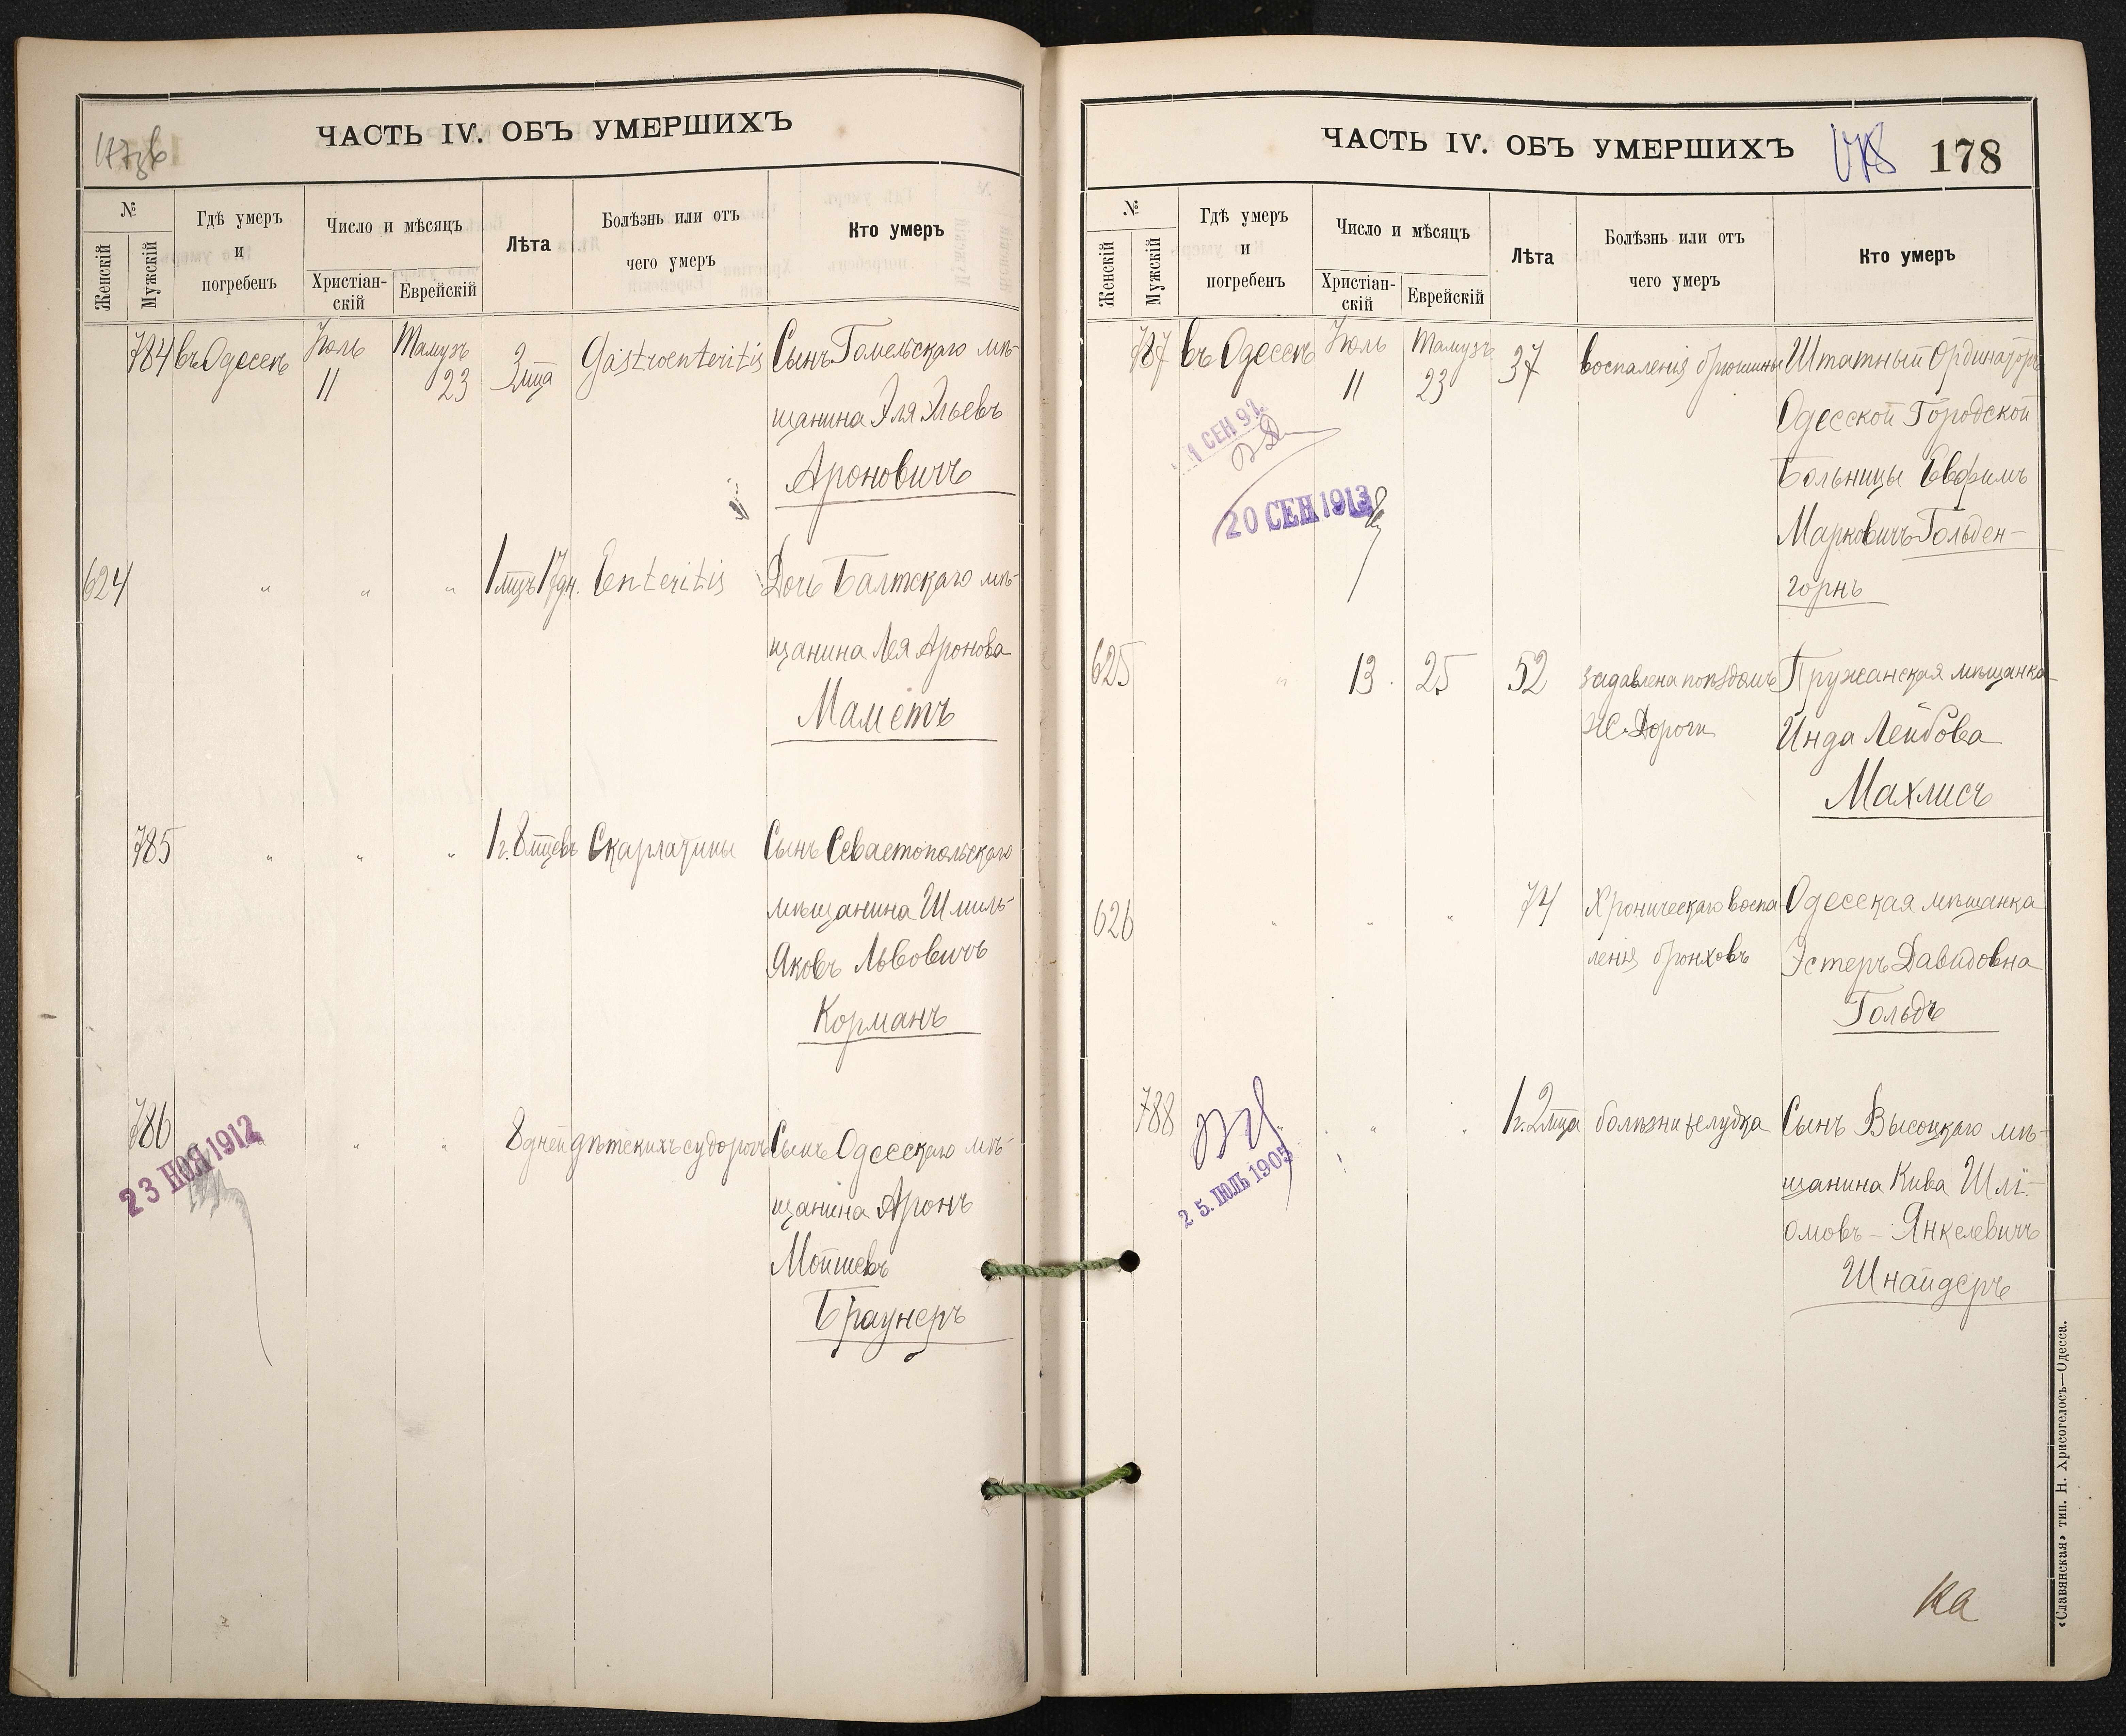 ЧАСТЬ IV. ОБЪ УМЕРШИХЪ
№
Женскій
Мужскій
Гдѣ умеръ
и
погребенъ
Число и мѣсяцъ
Христіан-
скій
Еврейскій
Лѣта
Болѣзнь или отъ
чего умеръ
Кто умеръ
784 въ Одессѣ Іюль 11 Тамузъ 23 3 м̅ца Gastroenteritis Сынъ Гомельскаго мѣ-
щанина Эля Эльевъ
Ароновичъ
624 " " " 1 мцъ 17 дн. Enteritis Дочь Балтскаго мѣ-
щанина Лея Аронова
Маметъ
785 " " " 1 г. 8 мцевъ Скарлатины Сынъ Севастопольскаго
мѣщанина Шмиль-
Яковъ Львовичъ
Корманъ
786 " " 8 дней дѣтскихъ судорогъ Сынъ Одесскаго мѣ-
щанина Аронъ
Мойшевъ
Браунеръ
23 НОЯ 1912
ЧАСТЬ IV. ОБЪ УМЕРШИХЪ
178
178
№
Женскій
Мужскій
Гдѣ умеръ
и
погребенъ
Число и мѣсяцъ
Христіан-
скій
Еврейскій
Лѣта
Болѣзнь или отъ
чего умеръ
Кто умеръ
787 въ Одессѣ Іюль 11 Тамузъ 23 37 воспаленія брюшины Штатный Ординаторъ
Одесской Городской
Больницы Евфимъ
Марковичъ Гольден-
горнъ
СЕН
20 СЕН 1913
625 " 13 25 52 задавлена поѣздомъ Пружанская мѣщанка
Ж. Дороги Инда Лейбова
Махлисъ
626 " " " 74 Хроническаго воспа- Одесская мѣщанка
ленія бронховъ Эстеръ Давидовна
Гольдъ
788 " " 1 г. 2 мца болѣзни желудка Сынъ Высоцкаго мѣ-
щанина Кива Шлі-
омовъ-Янкелевичъ
Шнайдеръ
25. ІЮЛЬ 1905
«Славянская» тип. Н. Хрисогелосъ—Одесса.